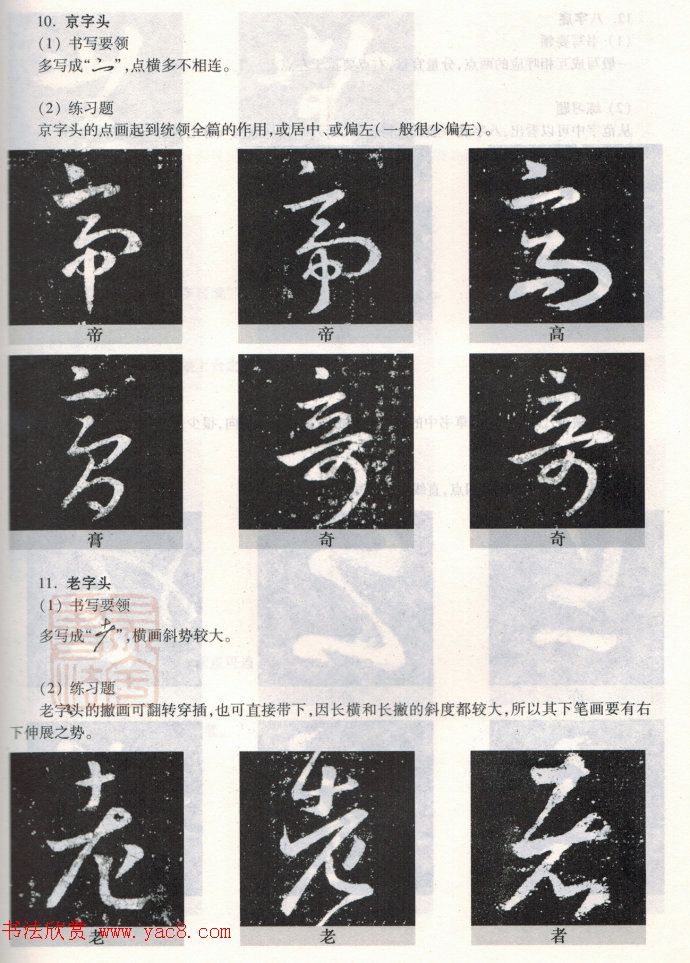 10. 京字头
(1) 书写要领
多写成“亠”,点横多不相连。
(2) 练习题
京字头的点画起到统领全篇的作用,或居中、或偏左(一般很少偏左)。
帝 帝 高
帝 帝 高
膏 奇 奇
膏 奇 奇
11. 老字头
(1) 书写要领
多写成“耂”,横画斜势较大。
(2) 练习题
老字头的撇画可翻转穿插,也可直接带下,因长横和长撇的斜度都较大,所以其下笔画要有右
下伸展之势。
老 老 者
老 老 者
书法欣赏 www.yac8.com